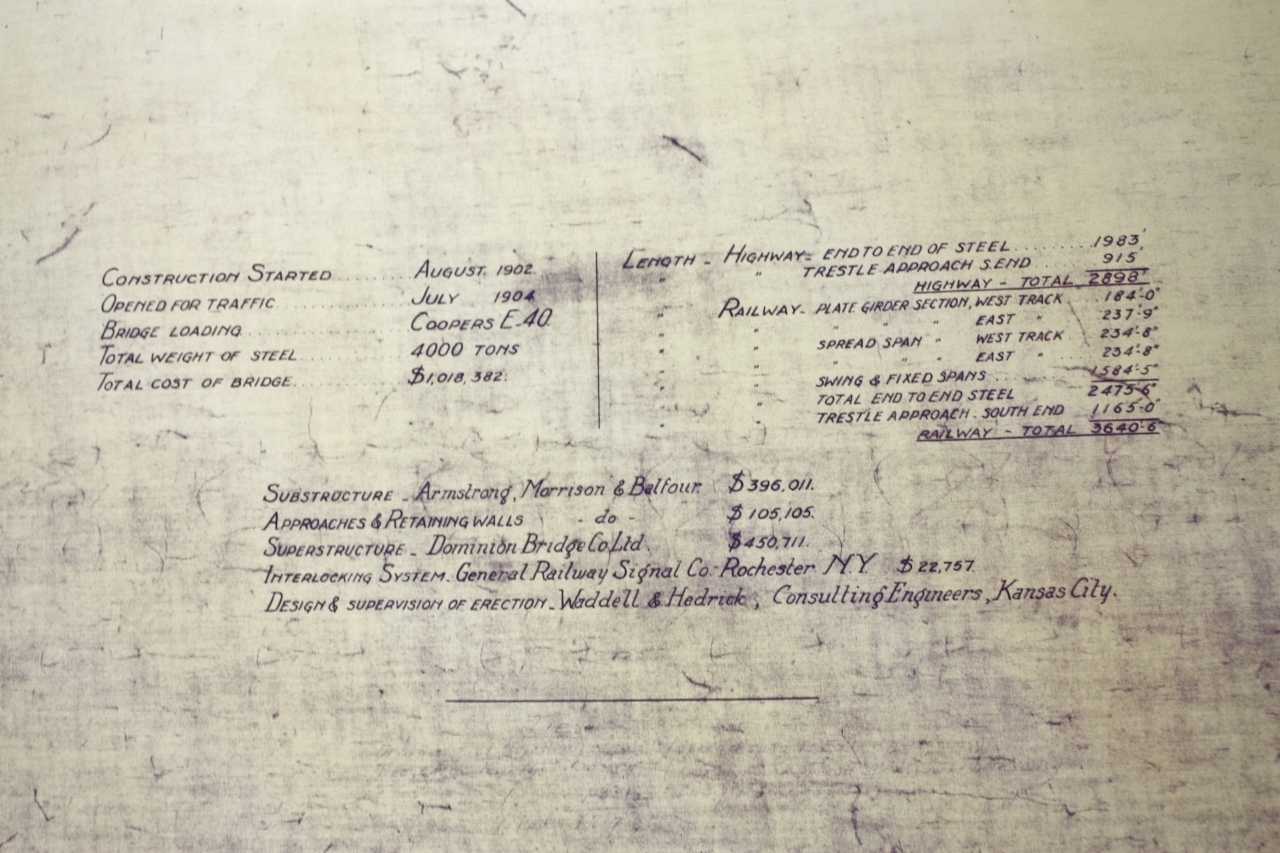 CONSTRUCTION STARTED .......... AUGUST 1902.
OPENED FOR TRAFFIC .......... JULY 1904
BRIDGE LOADING .......... COOPERS E-40.
TOTAL WEIGHT OF STEEL .......... 4000 TONS
TOTAL COST OF BRIDGE .......... $1,018,382.
LENGTH - HIGHWAY - END TO END OF STEEL .......... 1983'
" " TRESTLE APPROACH S. END .......... 915
HIGHWAY - TOTAL 2898'
" RAILWAY - PLATE GIRDER SECTION, WEST TRACK . 184'-0"
" " " " " EAST " . 237'-9"
" " SPREAD SPAN " WEST TRACK . 234'-8"
" " " " " EAST " . 234'-8"
" " SWING & FIXED SPANS .......... 1584'-5"
" " TOTAL END TO END STEEL 2475'-6"
" " TRESTLE APPROACH . SOUTH END 1165'-0"
RAILWAY - TOTAL 3640'-6"
SUBSTRUCTURE - Armstrong, Morrison & Balfour. $396,011.
APPROACHES & RETAINING WALLS - do - $105,105.
SUPERSTRUCTURE - Dominion Bridge Co. Ltd. $450,711.
INTERLOCKING SYSTEM. General Railway Signal Co. Rochester N.Y. $22,757.
DESIGN & SUPERVISION OF ERECTION - Waddell & Hedrick, Consulting Engineers, Kansas City.